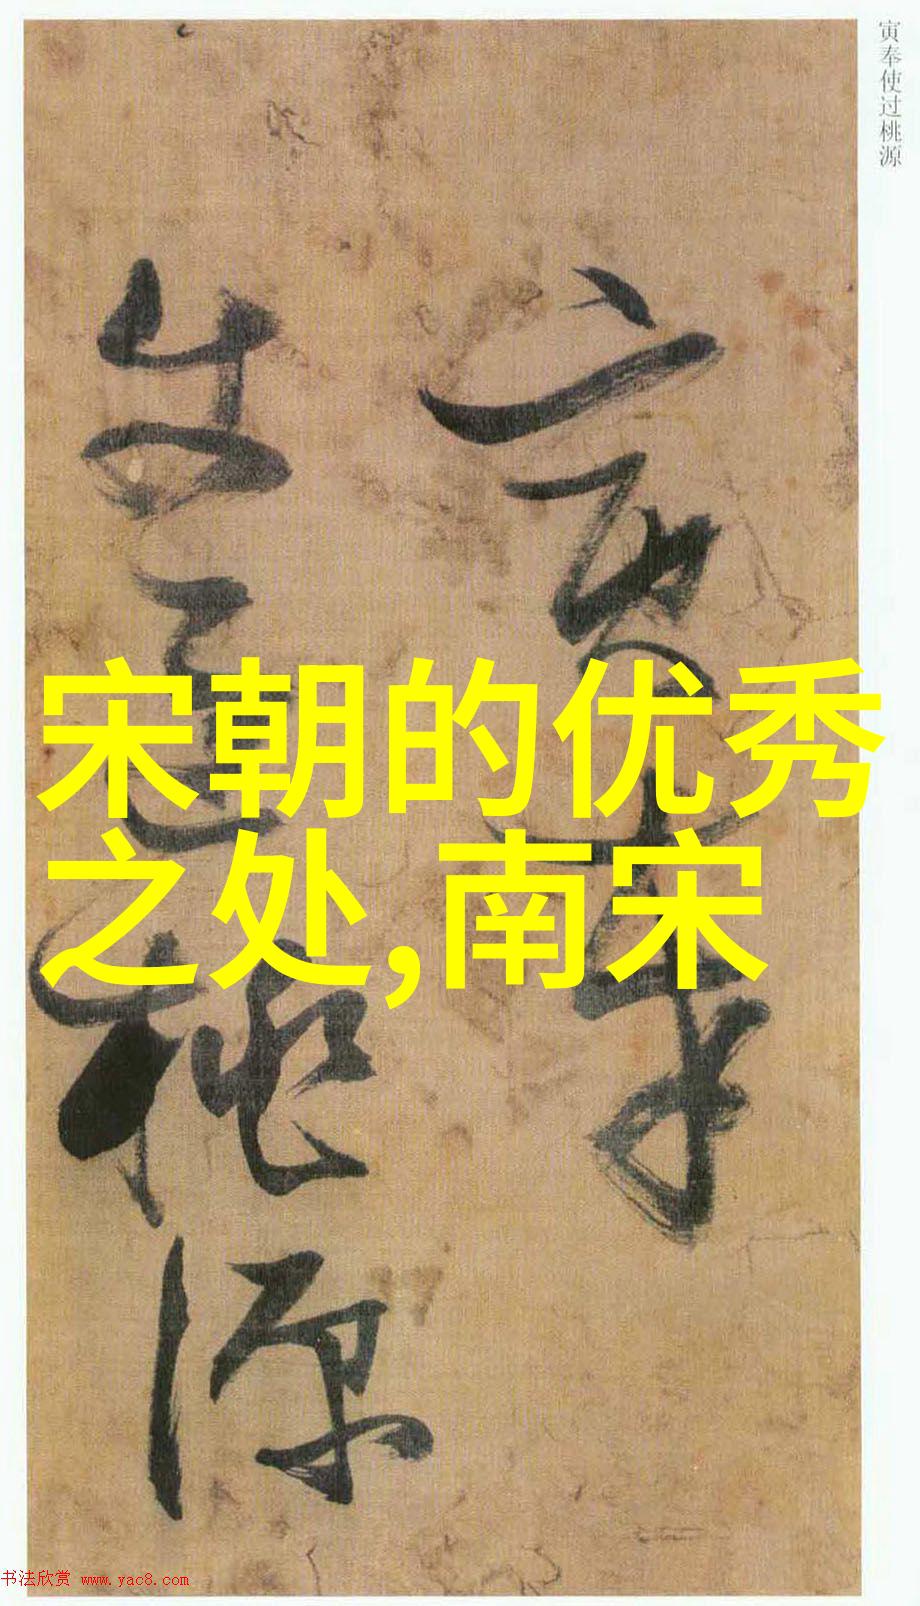 寅奉使过桃源
寅奉
使过桃源
宋朝的优秀
之处,南宋
书法欣赏 www.yac8.com